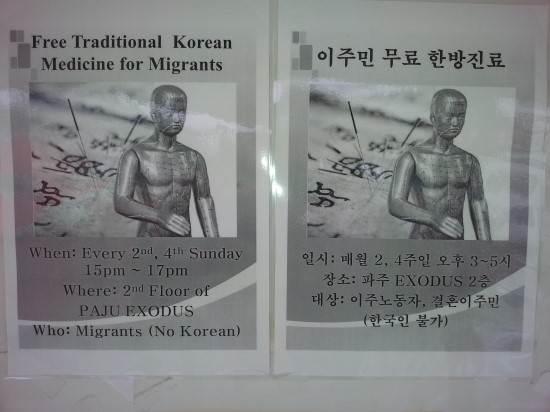 Free Traditional Korean
Medicine for Migrants
When: Every 2nd, 4th Sunday
15pm ~ 17pm
Where: 2nd Floor of
PAJU EXODUS
Who: Migrants (No Korean)
이주민 무료 한방진료
일시: 매월 2, 4주일 오후 3~5시
장소: 파주 EXODUS 2층
대상: 이주노동자, 결혼이주민
(한국인 불가)